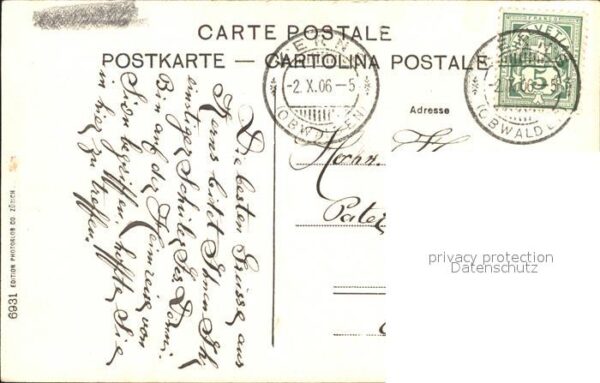 CARTE POSTALE
POSTKARTE — CARTOLINA POSTALE
KERNS
-2.X.06-5
(OBWALDEN)
HELVETIA
FRANCO
5
KERNS
-2.X.06-5
(OBWALDEN)
Adresse
Hochw.
Pater
privacy protection
Datenschutz
Die besten Grüsse aus
Kerns bietet Ihnen Ihr
einstiger Schüler
Bin auf der Heimreise von
Sion begriffen, hoffte Sie
in hier zu treffen.
6931 EDITION PHOTOGLOB CO. ZÜRICH